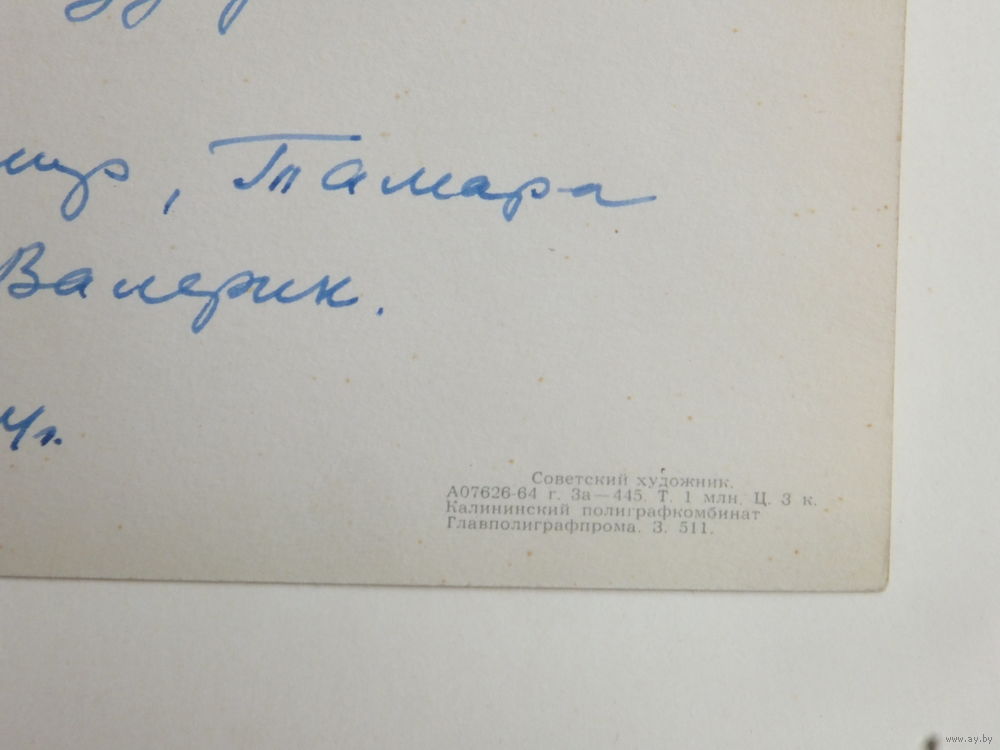 , Тамара
Валерик.
4г.
Советский художник.
А07626-64 г. За—445. Т. 1 млн. Ц. 3 к.
Калининский полиграфкомбинат
Главполиграфпрома. З. 511.
www.ay.by